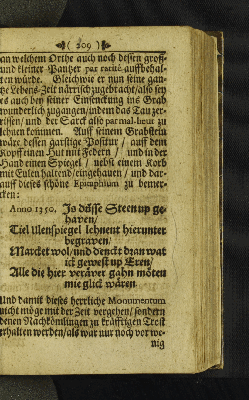 ( 209 )
an welchem Orthe auch noch dessen groß-
und kleiner Pantzer par rarité auffbehal-
ten würde. Gleichwie er nun seine gan-
tze Lebens-Zeit närrisch zugebracht/also sey
es auch bey seiner Einsenckung ins Grab
wunderlich zugangen/indem das Tau zer-
rissen/ und der Sarck also parmal-heur zu
lehnen kommen. Auff seinem Grabstein
wäre dessen garstige Positur / auff dem
Kopff einen Hut mit Federn / und in der
Hand einen Spiegel / nebst einem Korb
mit Eulen haltend/eingehauen / und dar-
auff dieses schöne Epitaphium zu bemer-
cken:
Anno 1350. Is düsse Steen up ge-
haven/
Tiel Ulenspiegel lehnent hierunter
begraven/
Marcket wol/und denckt dran wat
ick gewest up Eren/
Alle die hier veräver gahn möten
mie glick wären
Und damit dieses herrliche Monumentum
nicht möge mit der Zeit vergehen/ sondern
denen Nachkömlingen zu kräfftigen Trost
erhalten werden/als war nur noch vor we-
nig